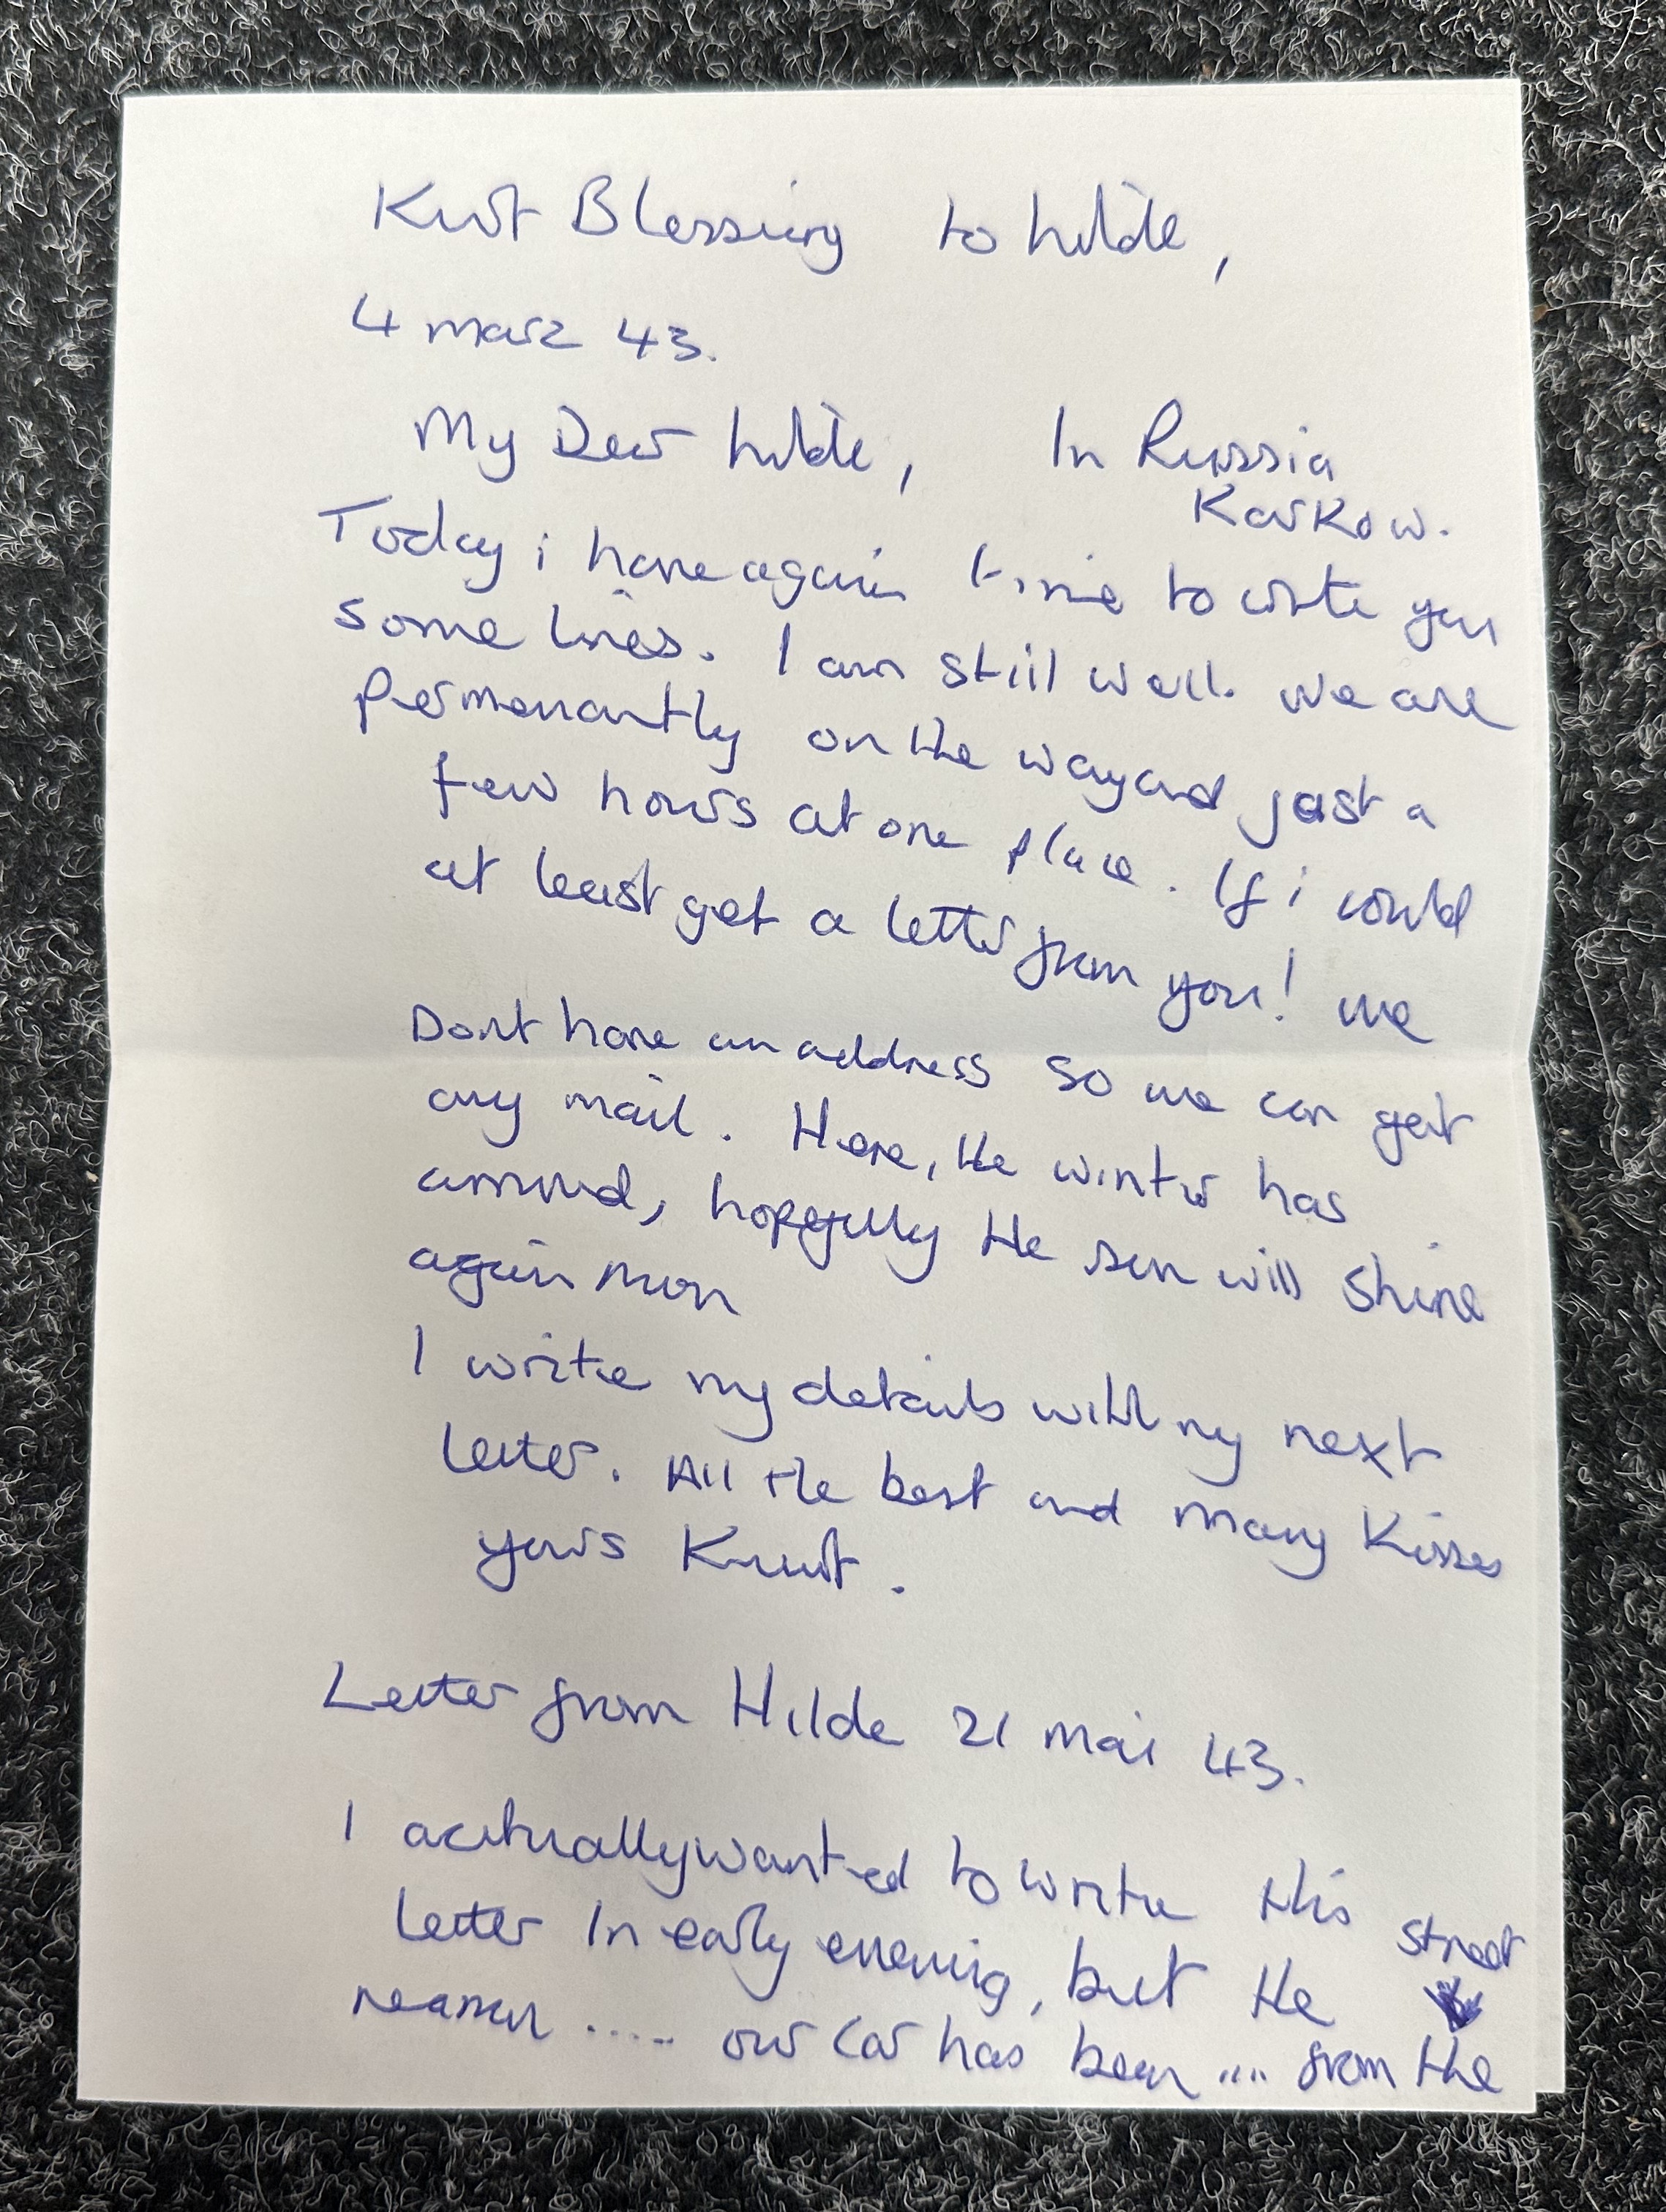 Kurt Blessing to hilde,
4 marz 43.
My Dear hilde, In Russia
Karkow.
Today i have again time to write you
some lines. I am still well. we are
permenantly on the way and just a
few hours at one place. If i could
at least get a letter from you! we
Dont have an address so we can get
any mail. Here, the winter has
arrived, hopefully the sun will shine
again
I write my details with my next
letter. All the best and many Kisses
yours Kurt.
Letter from Hilde 21 mai 43.
I acitually wanted to write this
letter In early evening, but the street
..... our car has been .... from the